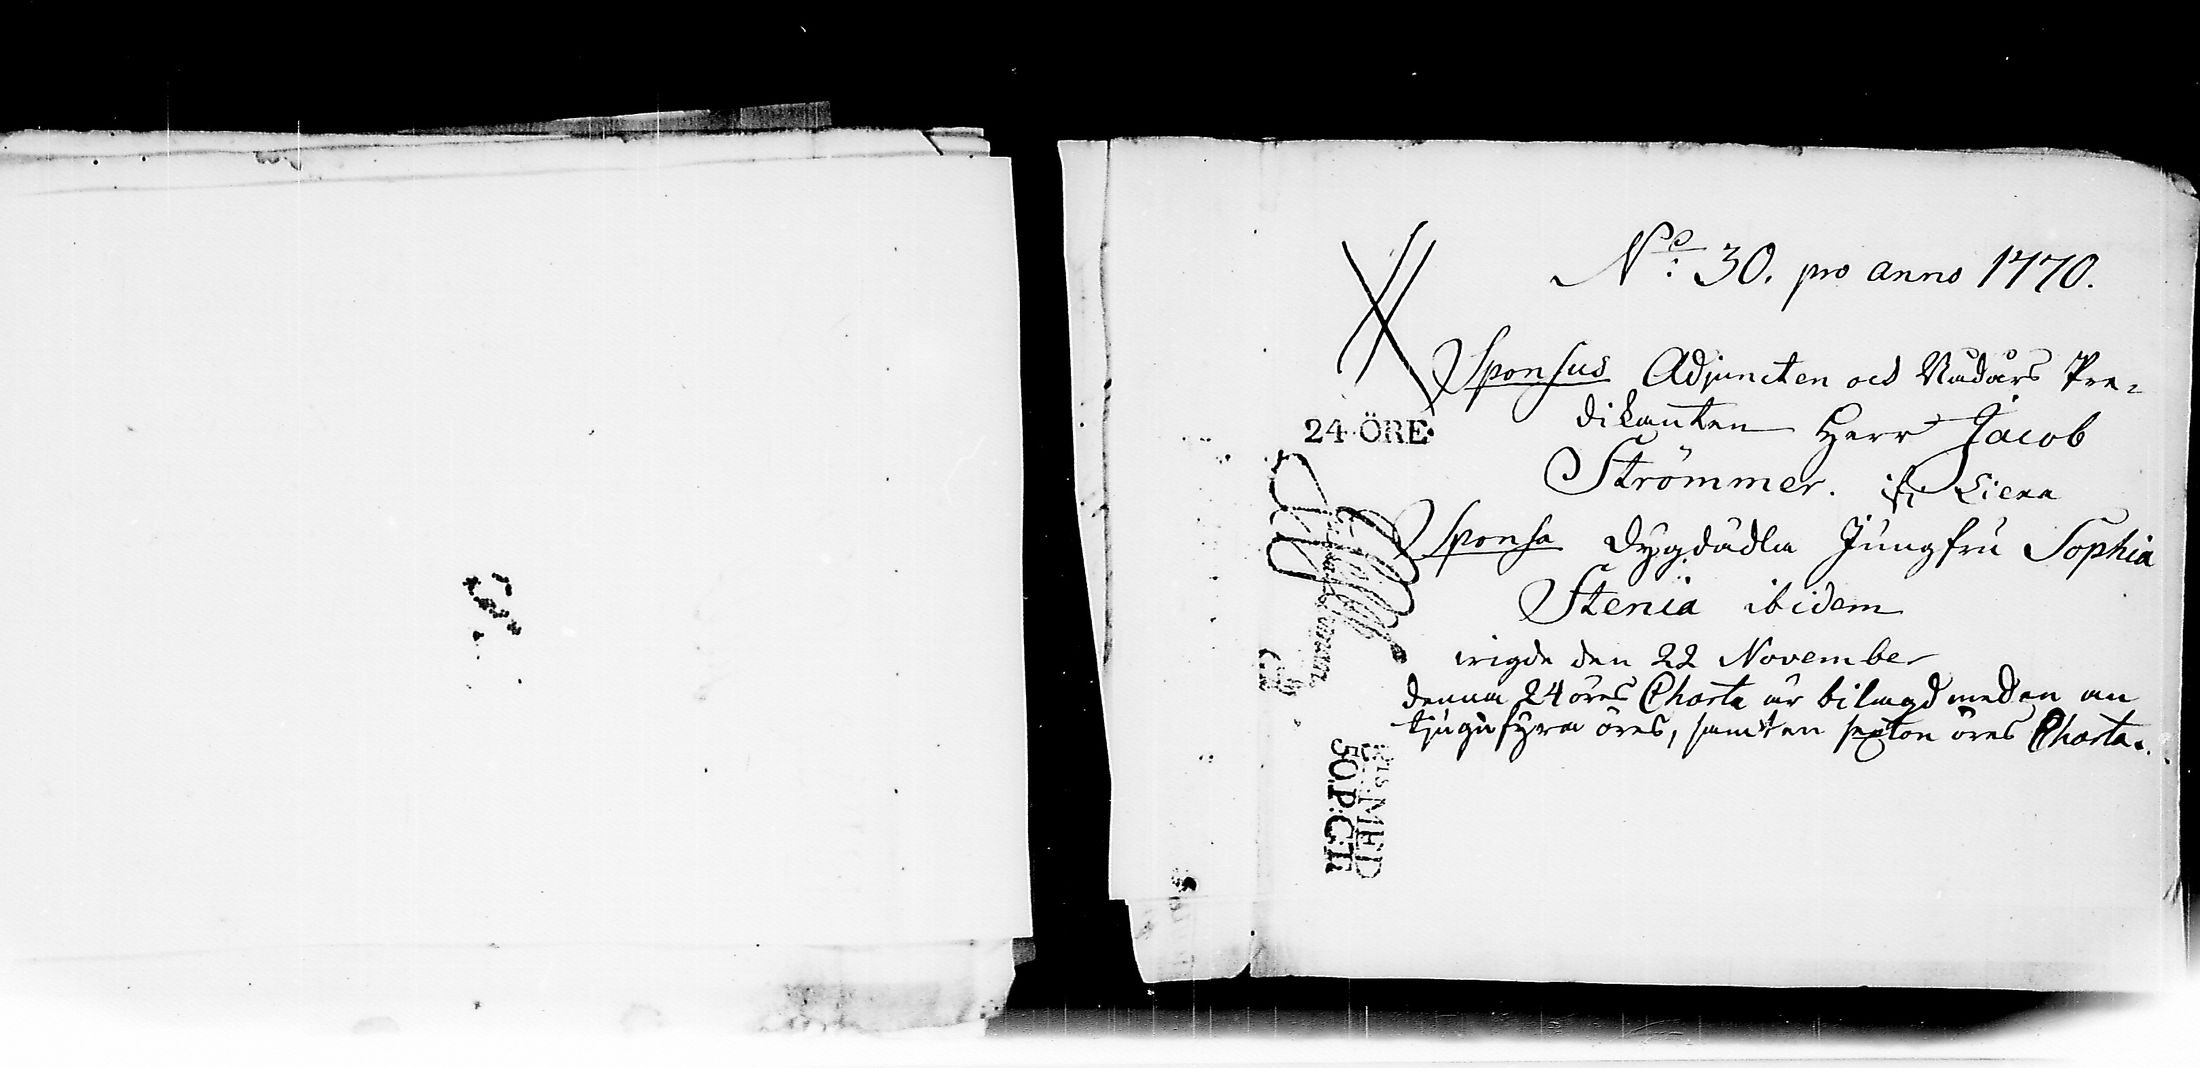 No: 30. pro anno 1770.
Sponsus Adjuncten och Nådårs Pre-
dikanten Herr Jacob
Strömmer. ifr.
24 ÖRE
Sponsa dygdädla Jungfru Sophia
Stenia ibidem
wigde den 22 November
denna 24 öres Charta är bilagd med en an
tjugufyra öres, samt en sexton öres Charta.
MED
50.P:CT: